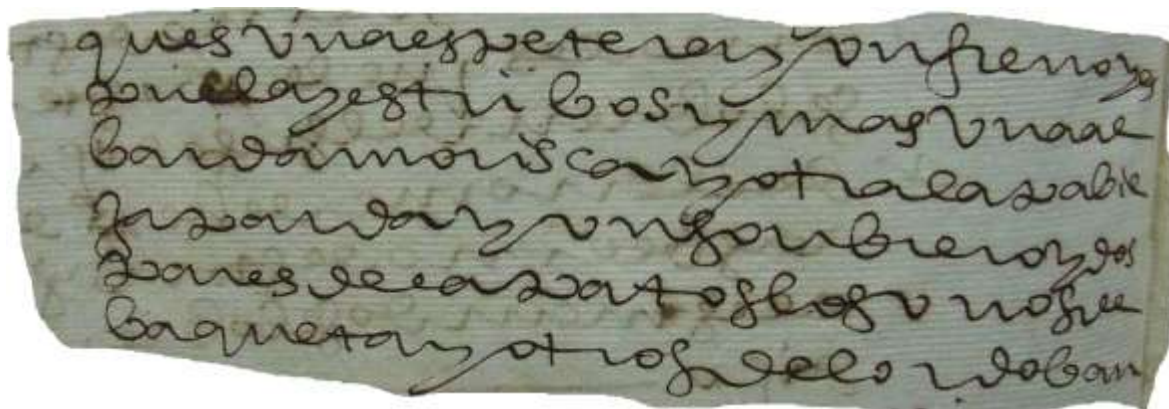 ques una espetera y un freno y es
puela y estribos y mas una al
barda morisca y otra capa bie
ja parda y un sonbrero y dos
pares de capatos los unos de
baqueta y otros de cordoban